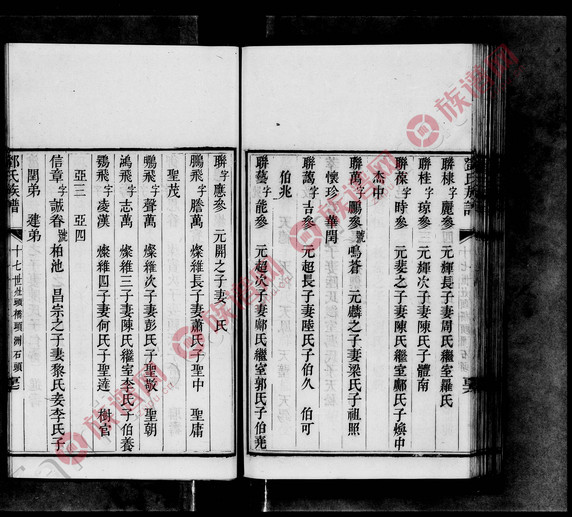 聯棣字麗參 元輝長子妻周氏繼室羅氏
聯桂字琼參 元輝次子妻陳氏子體南
聯葆字時參 元斐之子妻陳氏繼室鄺氏子煥中
杰中
聯萬字鵬參號鳴蒼 元麟之子妻梁氏子祖照
懷珍 華閏
聯萬字吉參 元超長子妻陸氏子伯久 伯可
伯兆
聯藝字能參 元超次子妻鄺氏繼室郭氏子伯堯
聯 字應參 元開之子妻 氏
鵬飛字勝萬 燦維長子妻蕭氏子聖中 聖庸
聖茂
鶚飛字聲萬 燦維次子妻彭氏子聖敬 聖朝
鴻飛字志萬 燦維三子妻陳氏繼室李氏子伯養
鷄飛字凌漢 燦維四子妻何氏子聖達 樹官
亞三 亞四
信章字誠春號柏池 昌宗之子妻黎氏妾李氏子
閏弟 建弟
鄧氏族譜 十七世
族譜网